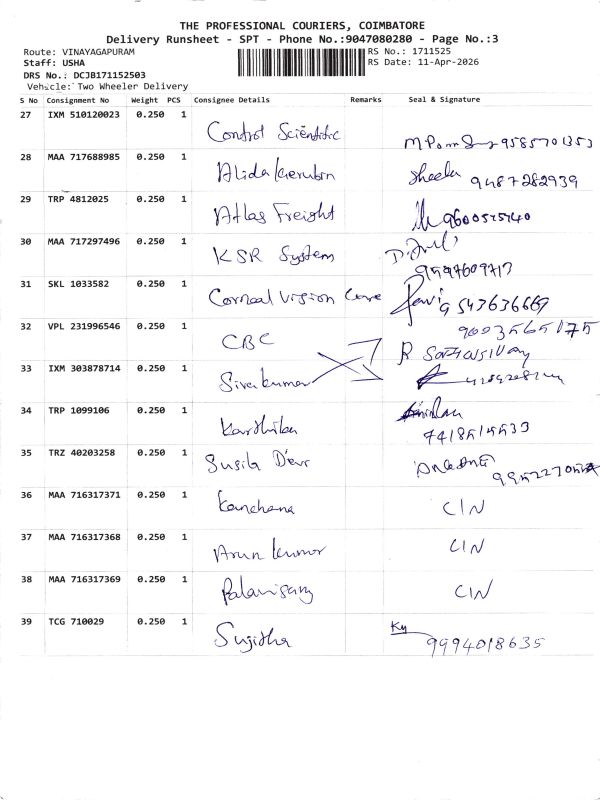 THE PROFESSIONAL COURIERS, COIMBATORE
Delivery Runsheet - SPT - Phone No.:9047080280 - Page No.:3
Route: VINAYAGAPURAM
RS No.: 1711525
Staff: USHA
RS Date: 11-Apr-2026
DRS No.: DCJB171152503
Vehicle: Two Wheeler Delivery
S No Consignment No Weight PCS Consignee Details Remarks Seal & Signature
27 IXM 510120023 0.250 1 Control Scientific 9585701353
28 MAA 717688985 0.250 1 Sheela 9487282939
29 TRP 4812025 0.250 1 Atlas Freight 9600575740
30 MAA 717297496 0.250 1 KSR System
31 SKL 1033582 0.250 1 Corneal Vision Care 9543636669
32 VPL 231996546 0.250 1 CBC 9003565175
33 IXM 303878714 0.250 1 Sivakumar
34 TRP 1099106 0.250 1 Karthika
35 TRZ 40203258 0.250 1 Susila Devi
36 MAA 716317371 0.250 1 Kanchana CIN
37 MAA 716317368 0.250 1 Arun kumar CIN
38 MAA 716317369 0.250 1 Palanisamy CIN
39 TCG 710029 0.250 1 Sujitha Ky 9994018635